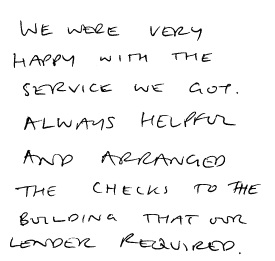 WE WERE VERY
HAPPY WITH THE
SERVICE WE GOT.
ALWAYS HELPFUL
AND ARRANGED
THE CHECKS TO THE
BUILDING THAT OUR
LENDER REQUIRED.